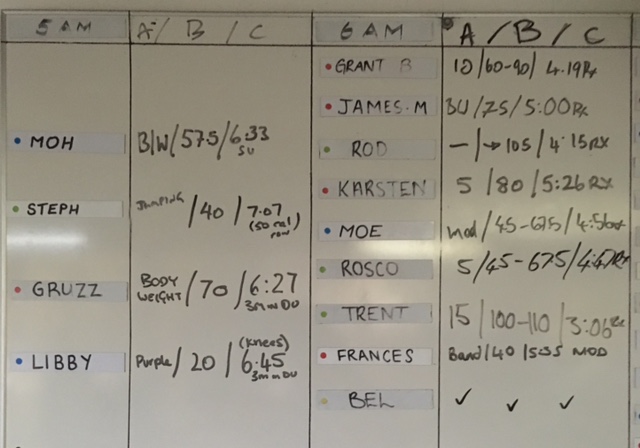 5 AM A / B / C
MOH B/W / 57.5 / 6:33 SU
STEPH JUMPING / 40 / 7.07 (50 cal row)
GRUZZ BODY WEIGHT / 70 / 6:27 3min DU
LIBBY Purple / 20 / 6:45 (knees) 3min DU
6 AM A / B / C
GRANT B 10 / 60-90 / 4.19Rx
JAMES.M BW / 75 / 5:00Rx
ROD — / → 105 / 4:15RX
KARSTEN 5 / 80 / 5:26 RX
MOE mod / 45-67.5 / 4:56
ROSCO 5 / 45-67.5 / 4:47Rx
TRENT 15 / 100-110 / 3:06 Rx
FRANCES Band / 40 / 5:35 MOD
BEL ✓ ✓ ✓